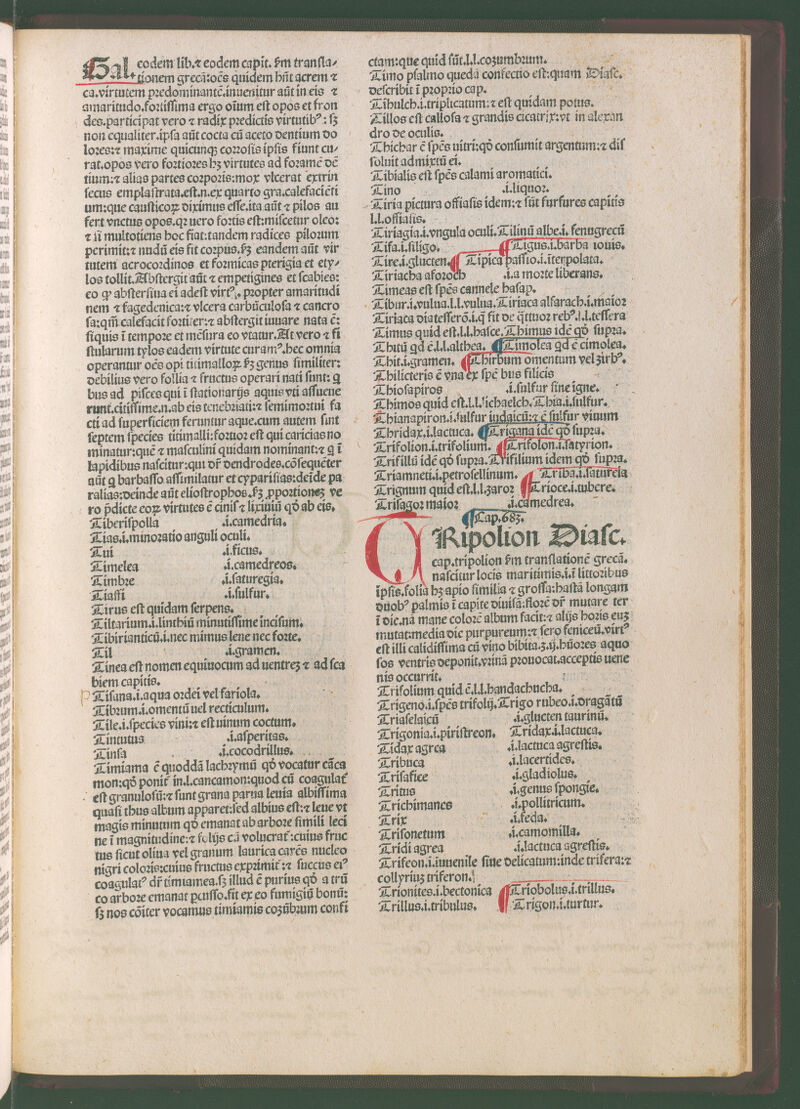 Gal. eodem lib.⁊ eodem capit. ẜm transla-
tionem grecā:oēs quidem hñt acrem ⁊
ca.virtutem predominantē.inuenitur aūt in eis ⁊
amaritudo.fortissima ergo oīum est opos et fron
des.participat vero ⁊ radix predictis virtutibꝰ: sꝫ
non equaliter.ipsa aūt cocta cū aceto dentium do
lores:⁊ maxime quicunqꝫ corrosis ipsis fiunt cu/
rat.opos vero fortiores hꝫ virtutes ad foramē dē
tium:⁊ alias partes corporis:mox vlcerat extrin
secus emplastrata.est.n.ex quarto gra.calefaciēti
um:que causticoꝝ diximus esse.ita aūt ⁊ pilos au
fert vnctus opos.qꝛ uero fortis est:miscetur oleo:
⁊ si multotiens hoc fiat:tandem radices pilorum
perimit:⁊ nudū eis fit corpus.hꝫ eandem aūt vir
tutem acrocordinos et formicas pterigia et ety/
los tollit.Abstergit aūt ⁊ empetigines et scabies:
eo qp abstersiua ei adest virtꝰ. propter amaritudi
nem ⁊ fagedenica:⁊ vlcera carbūculosa ⁊ cancro
sa:qm̄ calefacit fortiter:⁊ abstergit iuuare nata ē:
siquis ī tempore et mēsura eo vtatur.At vero ⁊ fi
stularum tylos eadem virtute curamꝰ.hec omnia
operantur oēs opi titimalloꝝ hꝫ genus similiter:
debilius vero follia ⁊ fructus operari nati sunt: q
bus ad pisces qui ī stationarijs aquis vti assueue
runt.citissime.n.ab eis tenebriati:⁊ semimortui fa
cti ad superficiem feruntur aque.cum autem sunt
septem species titimalli:fortior est qui caricias no
minatur:quē ⁊ masculini quidam nominant:⁊ q ī
lapidibus nascitur:qui dr̄ dendrodes.cōsequēter
aūt q barbasso assimilatur et cyparissias:deīde pa
ralias:deinde aūt eliostrophos.hꝫ ꝓportionez ve
ro p̄dicte eoꝝ virtutes ē cinis ⁊ lixiuiū qd̄ ab eis.
Tiberispolla .i.camedria.
Tias.i.minoratio anguli oculi.
Tui .i.ficus.
Timelea .i.camedreos.
Timbre .i.saturegia.
Tiassi .i.sulfur.
Tirus est quidam serpens.
Tiltarium.i.linthiū minutissime incisum.
Tibirianticū.i.nec mimus lene nec forte.
Til .i.gramen.
Tinea est nomen equiuocum ad uentrez ⁊ ad sca
biem capitis.
Tisana.i.aqua ordei vel fariola.
Tibrum.i.omentū uel recticulum.
Tile.i.species vini:⁊ est uinum coctum.
Tintutus .i.asperitas.
Tinsa .i.cocodrillus.
Timiama ē quoddā lachrymū qd̄ vocatur cāca
mon:qd̄ ponit̄ in.l.cancamon:quod cū coagulat̄
est granulosū:⁊ sunt grana parua leuia albissima
quasi thus album apparet:sed albius est:⁊ leue vt
magis minutum qd̄ emanat ab arbore simili leci
ne ī magnitudine:⁊ folijs cā volucrat̄:cuius fruc
tus sicut oliua vel granum laurica carēs nucleo
nigri coloris:cuius fructus exprimit̄:⁊ succus eiꝰ
coagulatꝰ dr̄ timiamea.sꝫ illud ē purius qd̄ a trū
co arbore emanat pcusso.fit ex eo fumigiū bonū:
sꝫ nos cōiter vocamus timiamis cozūbrum confi
ctam:que quid sūt.l.l.cozumbrum.
Timo psalmo quedā confectio est:quam Diasc.
describit ī proprio cap.
Tibulch.i.triplicatum:⁊ est quidam potus.
Tillos est callosa ⁊ grandis cicatrix:vt in alexan
dro de oculis.
Thichar ē spēs uitri:qd̄ consumit argentum:⁊ dis
soluit admixtū ei.
Tibialis est spēs calami aromatici.
Tino .i.liquor.
Tiria pictura offiasis idem:⁊ sūt furfures capitis
l.l.offialis.
Tiriagia.i.vngula oculi.Tilinū albe.i. fenugrecū
Tifa.i.siligo. ¶Tigus.i.barba iouis.
Tire.i.glucten.¶Tipica passio.i.iterpolata.
Tiriacha aforoch .i.a morte liberans.
Timeas est spēs cannele hasap.
Tibur.i.vulua.l.l.vulua.Tiriaca alfarach.i.maior
Tiriaca diatesserō.i.q̄ fit de q̄ttuor rebꝰ.l.l.tessera
Timus quid est.l.l.hasce.Thimus idē qd̄ supra.
Thitū qd ē.l.l.althea. ¶Timolea qd ē cimolea.
Thit.i.gramen. ¶Thirbum omentum vel zirbꝰ.
Thilicteris ē vna ex spē bus filicis
Thiosapiros .i.sulfur sine igne.
Thimos quid est.l.l.sichaelch.Thia.i.sulfur.
Thianapiron.i.sulfur iudaicū:⁊ ē sulfur viuum
Thridax.i.lactuca. ¶Trigana idē qd̄ supra.
Trifolion.i.trifolium. ¶Trifolon.i.satyrion.
Trifillū idē qd̄ supra.Trifilium idem qd̄ supra.
Triamneti.i.petrosellinum. ¶Triba.i.satureia
Trignum quid est.l.l.zaroz ¶Trioce.i.tubere.
Trisagoz maior .i.camedrea.
¶Cap.683.
TRipolion Diasc.
cap.tripolion ẜm translationē grecā.
nascitur locis maritimis.i.ī littoribus
ipsis.folia hꝫ apio similia ⁊ grossa:hastā longam
duobꝰ palmis ī capite diuisā:florē dr̄ mutare ter
ī die.nā mane colorē album facit:⁊ alijs horis eūꝫ
mutat:media die purpureum:⁊ sero feniceū.virtꝰ
est illi calidissima cū vino bibita.ʒ.ij.hūores aquo
sos ventris deponit.vrinā prouocat.acceptis uene
nis occurrit.
Trifolium quid ē.l.l.handachucha.
Trigeno.i.spēs trifolij.Trigo rubeo.i.dragātū
Triaselaicū .i.glucten taurinū.
Trigonia.i.piristreon. Tridax.i.lactuca.
Tidax agrea .i.lactuca agrestis.
Tribuca .i.lacertides.
Trisafice .i.gladiolus.
Tritus .i.genus spongie.
Trichimanes .i.pollitricum.
Trix .i.seda.
Trisonetum .i.camomilla.
Tridi agrea .i.lactuca agrestis.
Trifeon.i.iuuenile siue delicatum:inde trifera:⁊
collyrius triferon.
Trionites.i.bectonica ¶Triobolus.i.trillus.
Trillus.i.tribulus. ¶Trigon.i.turtur.